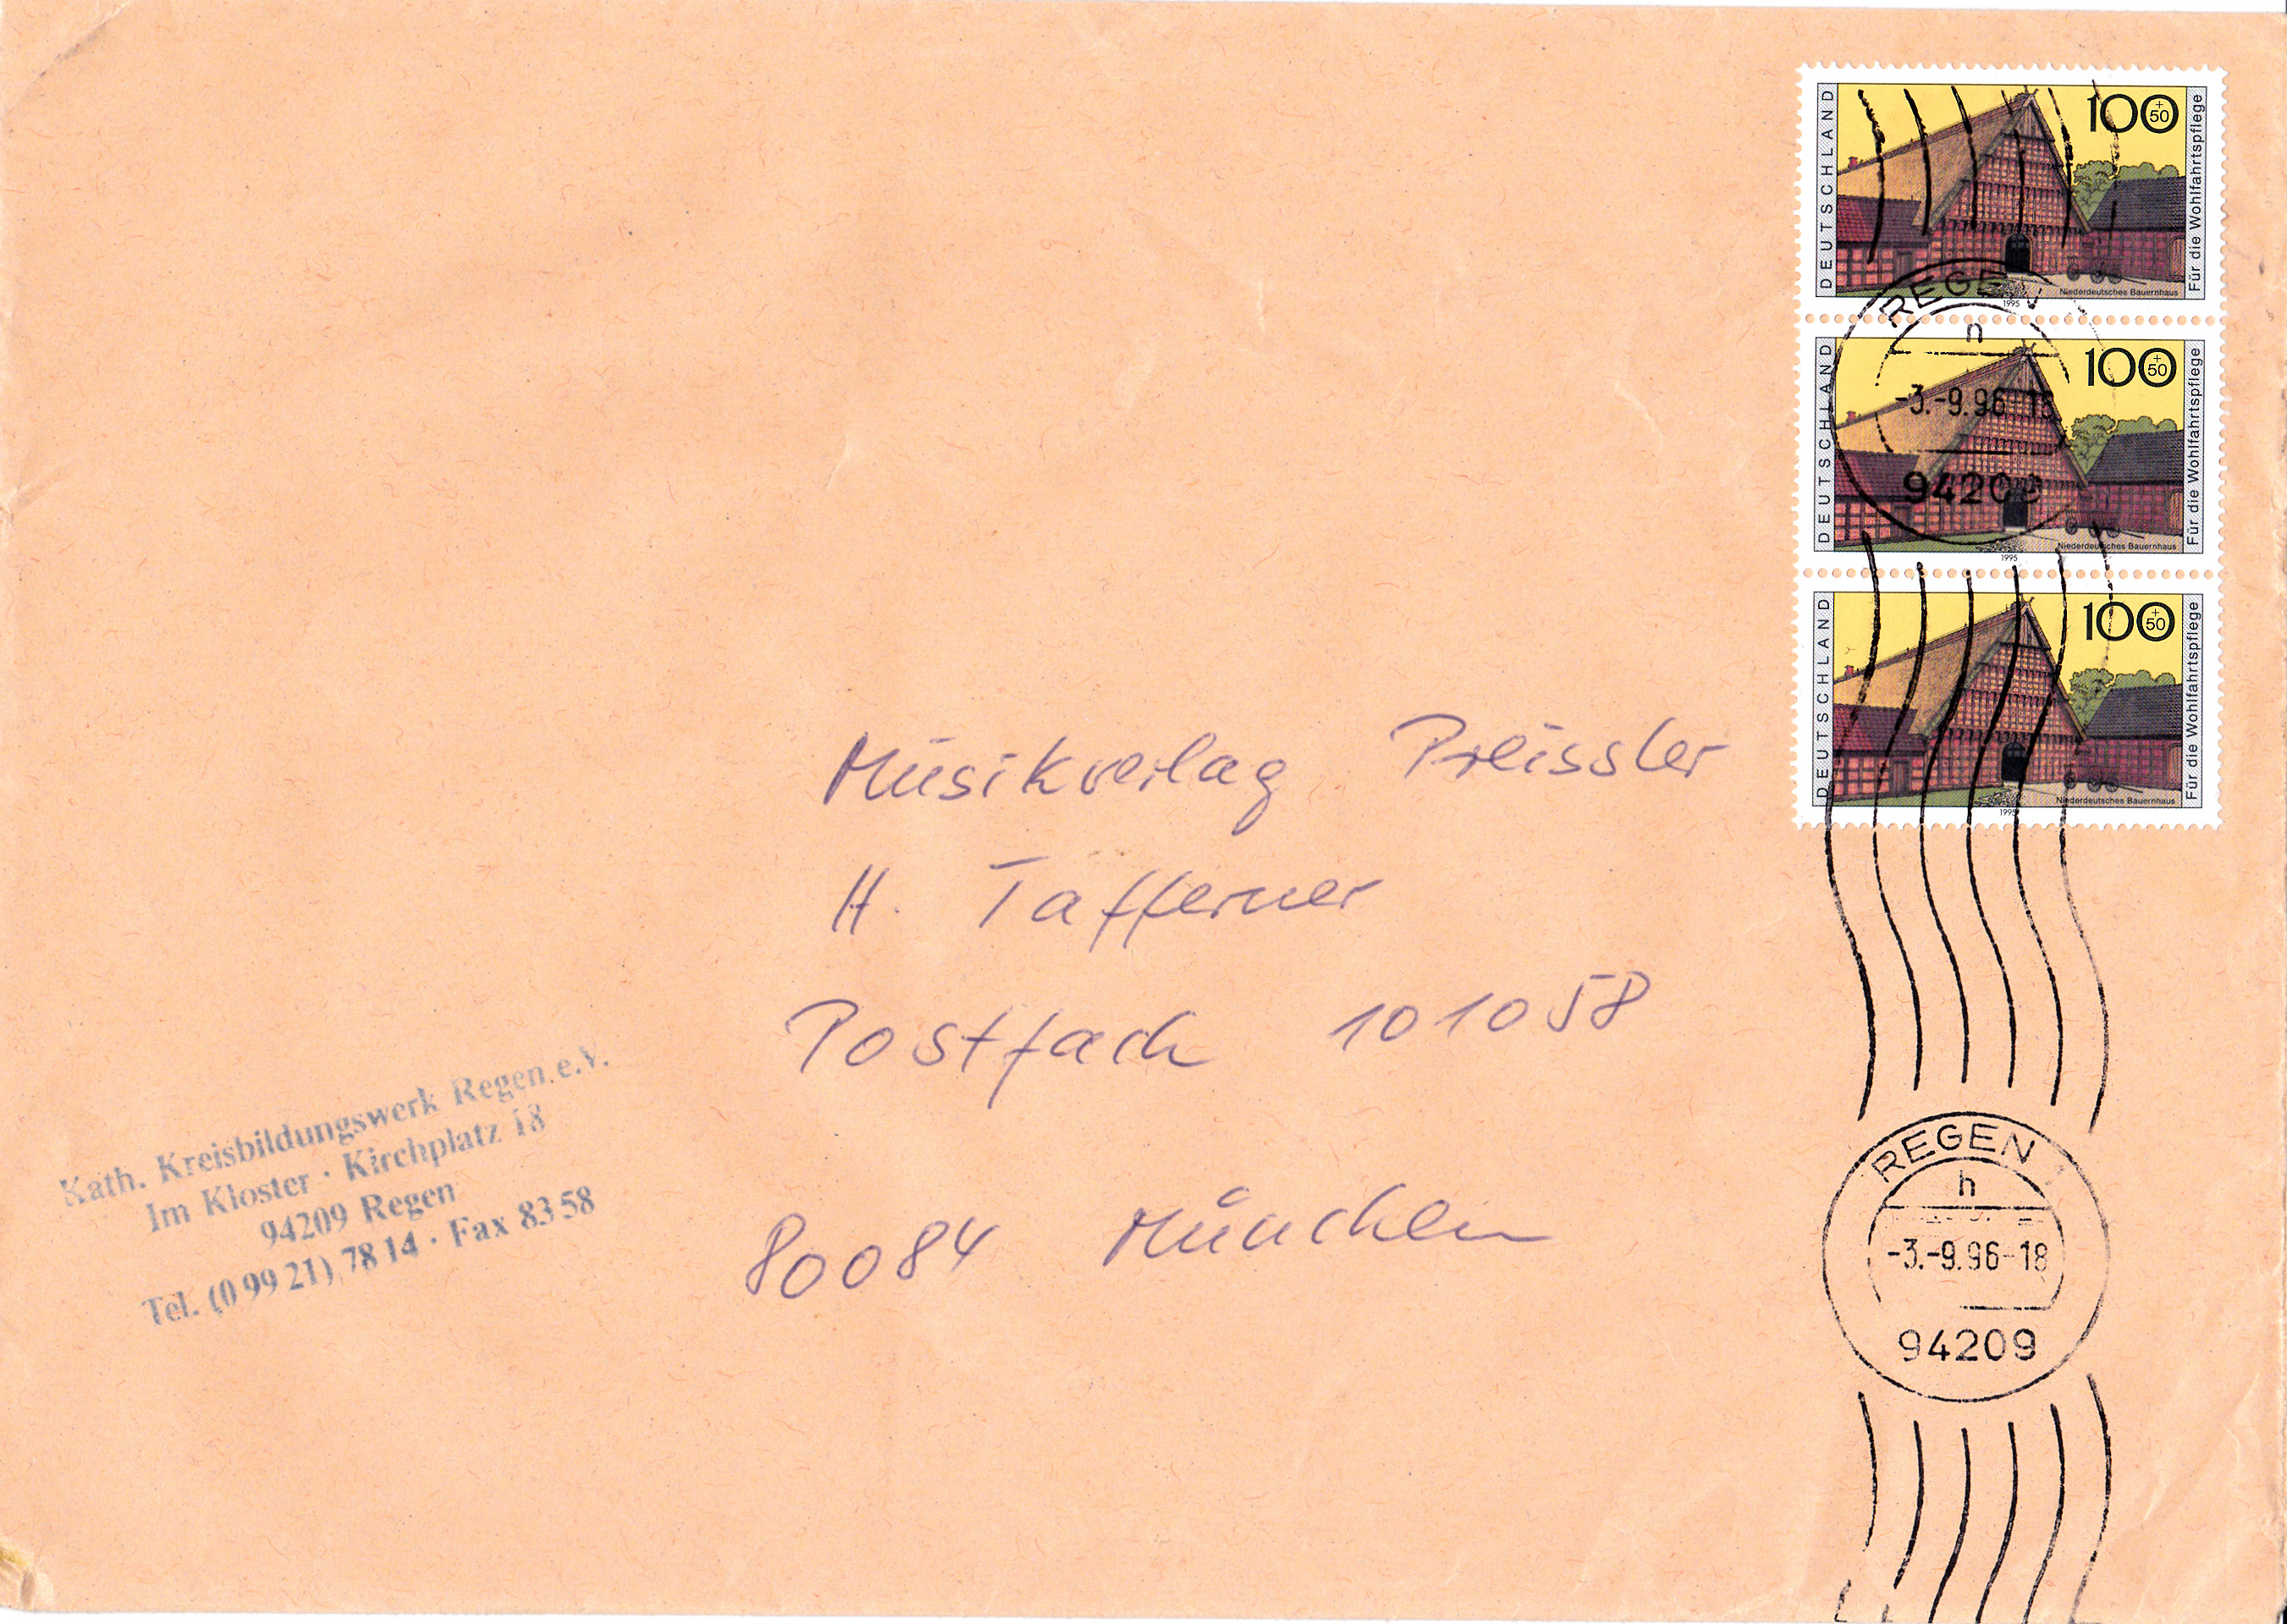 DEUTSCHLAND
100
+
50
Für die Wohlfahrtspflege
Niederdeutsches Bauernhaus
1995
REGEN
h
-3.-9.96-18
94209
DEUTSCHLAND
100
+
50
Für die Wohlfahrtspflege
Niederdeutsches Bauernhaus
1995
DEUTSCHLAND
100
+
50
Für die Wohlfahrtspflege
Niederdeutsches Bauernhaus
1995
Musikverlag Preissler
H. Tafferner
Postfach 101058
80084 München
Kath. Kreisbildungswerk Regen e.V.
Im Kloster · Kirchplatz 18
94209 Regen
Tel. (0 99 21) 78 14 · Fax 83 58
REGEN 1
h
-3.-9.96-18
94209